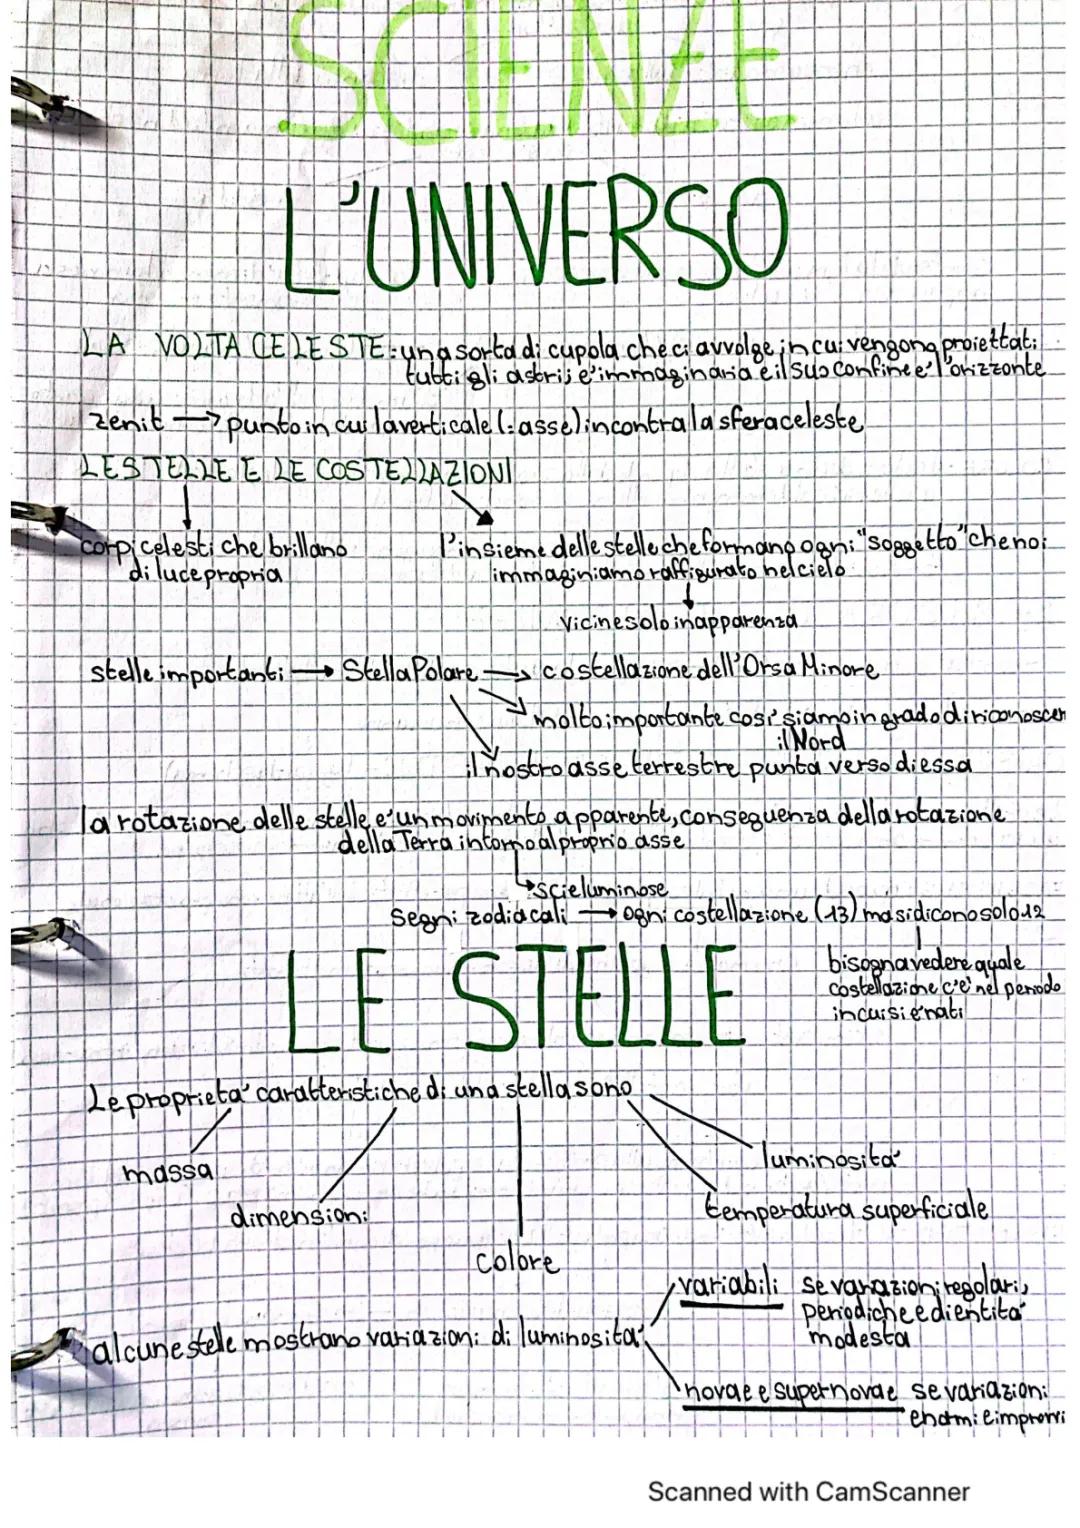 SCIENZE
L'UNIVERSO
LA VOLTA CELESTE: una sorta di cupola che ci avvolge, in cui vengono proiettati
tutti gli astri; e' immaginaria e il suo confine e' l'orizzonte
zenit → punto in cui la verticale (=asse) incontra la sfera celeste
LE STELLE E LE COSTELLAZIONI
corpi celesti che brillano
di luce propria
l'insieme delle stelle che formano ogni "soggetto" che noi
immaginiamo raffigurato nel cielo
vicine solo in apparenza
stelle importanti → Stella Polare → costellazione dell'Orsa Minore
molto importante cosi' siamo in grado di riconoscer
il Nord
il nostro asse terrestre punta verso di essa
la rotazione delle stelle e' un movimento apparente, conseguenza della rotazione
della Terra intorno al proprio asse
scie luminose
segni zodiacali → ogni costellazione (13) ma si dicono solo 12
bisogna vedere quale
costellazione c'e' nel periodo
in cui si e' nati
LE STELLE
Le proprieta' caratteristiche di una stella sono
massa
dimensioni
colore
temperatura superficiale
luminosita'
alcune stelle mostrano variazioni di luminosita'
variabili se variazioni regolari,
periodiche e di entita'
modesta
novae e supernovae se variazioni
enormi e improvvi
Scanned with CamScanner